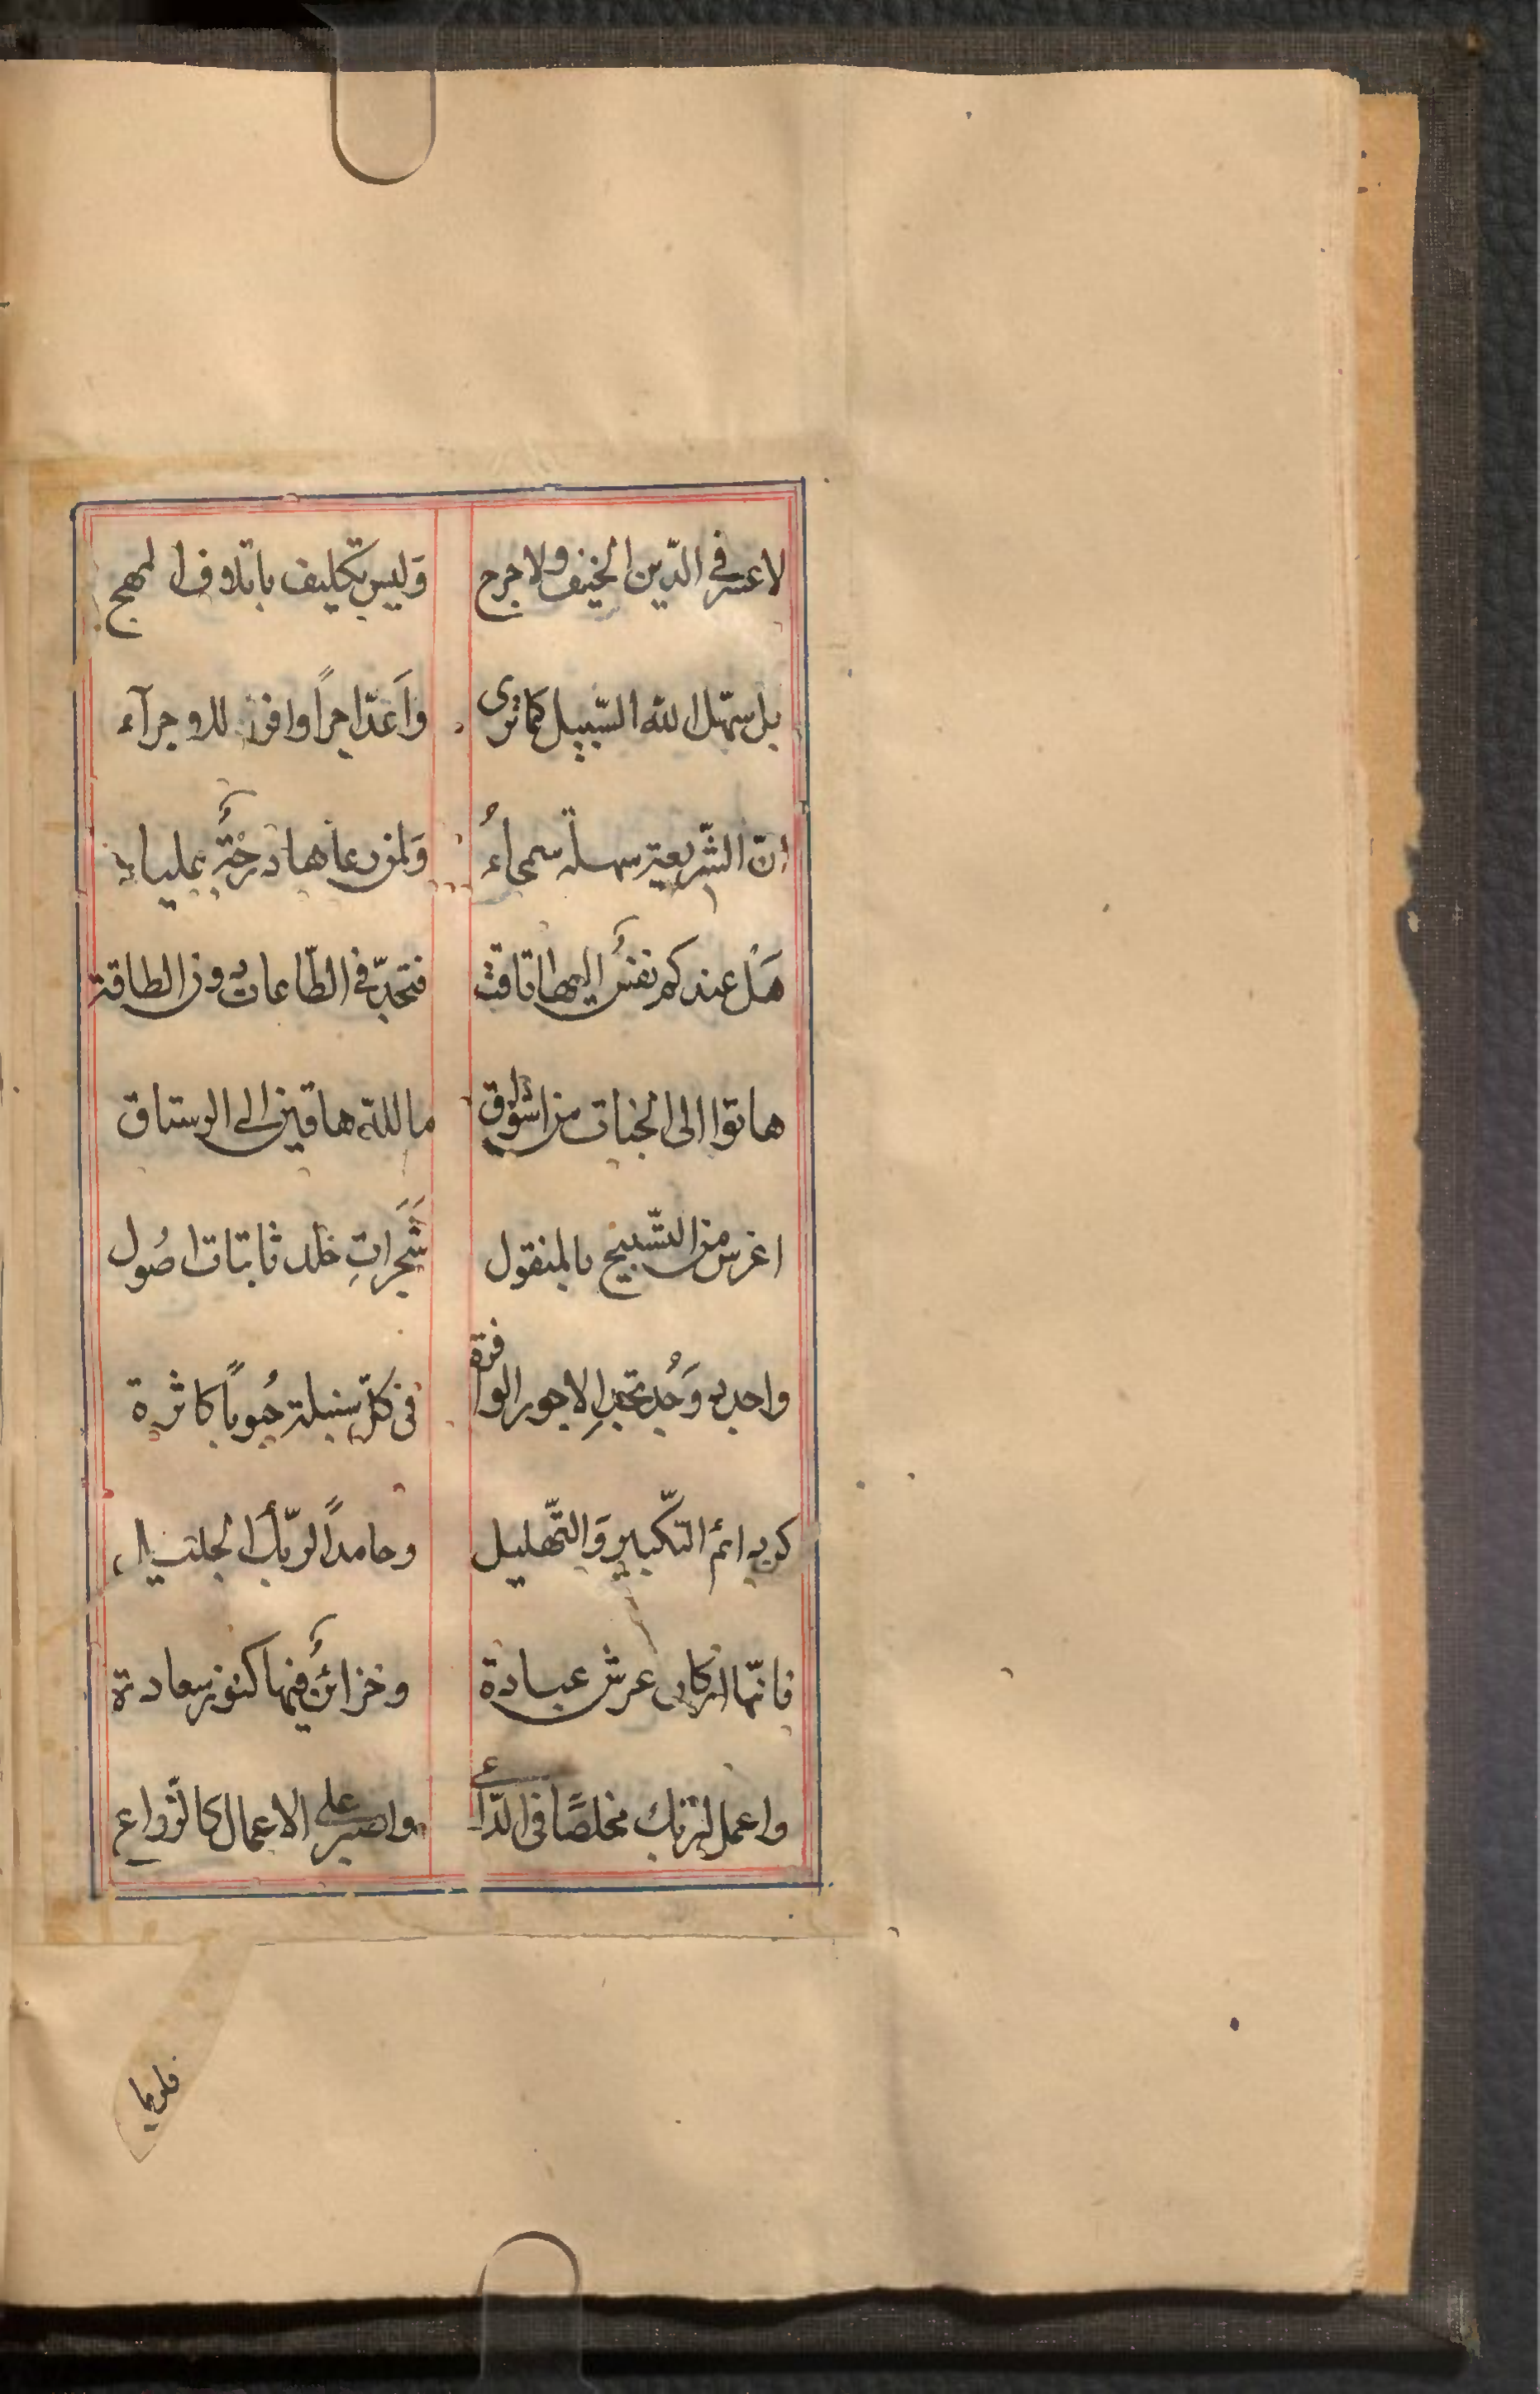 لا عسر في الدّين الحنيف ولا حرج وَليس تكليف باتلاف المهج
بل سهّل الله السّبيل كما ترى وَاَعدّ اجراً وافر
انّ الشّريعة سهلة سمحاءُ وَلمن رعاها درجةٌ علياء
هَل عندكم نفسٌ اليها تاقت فتجدّ في الطّاعات دون الطاقة
هاتوا الى الجنات من اشواق ما لله هاقين الى
اغرس من التّسبيح بالمنقول شَجَراتِ خلد ثابتات اصُول
واجد وَجُد تجدِ الاجور الوافرة في كلّ سنبلة حُبوباً كاثرة
كن دائم التّكبير وَالتّهليل وحامداً لربّك الجليل
فانّها اركان عرش عبادة وخزائنٌ فيها كنوز سعادة
واعمل لربّك مخلصًا في الدّاعي واصبر على الاعمال كالزّراع